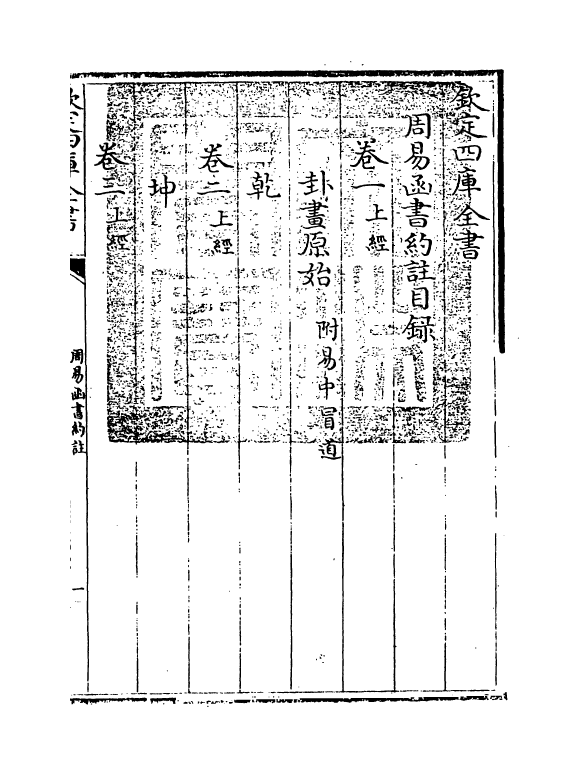 欽定四庫全書
周易函書約註目録
卷一上經
卦畫原始附易中冒道
乾
卷二上經
坤
卷三上經
欽定四庫全書
周易函書約註
一